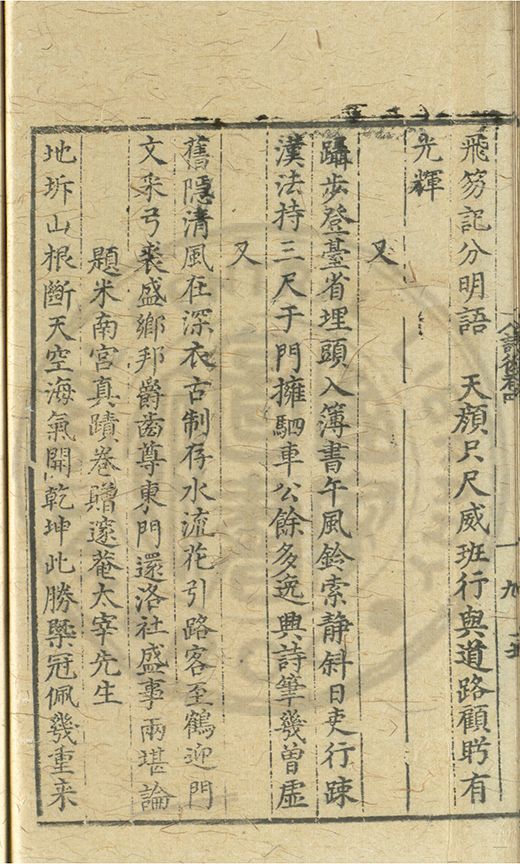 飛笏記分明語　天顏只尺威班行與道路顧眄有
光輝
又
躡步登臺省埋頭入簿書午風鈴索静斜日吏行踈
漢法持三尺于門擁駟車公餘多逸興詩筆幾曾虚
又
舊隱清風在深衣古制存水流花引路客至鶴迎門
文采弓裘盛鄉邦爵齒尊東門還洛社盛事兩堪論
題米南宫真蹟卷贈邃菴太宰先生
地坼山根斷天空海氣開乾坤此勝槩冠佩幾重来